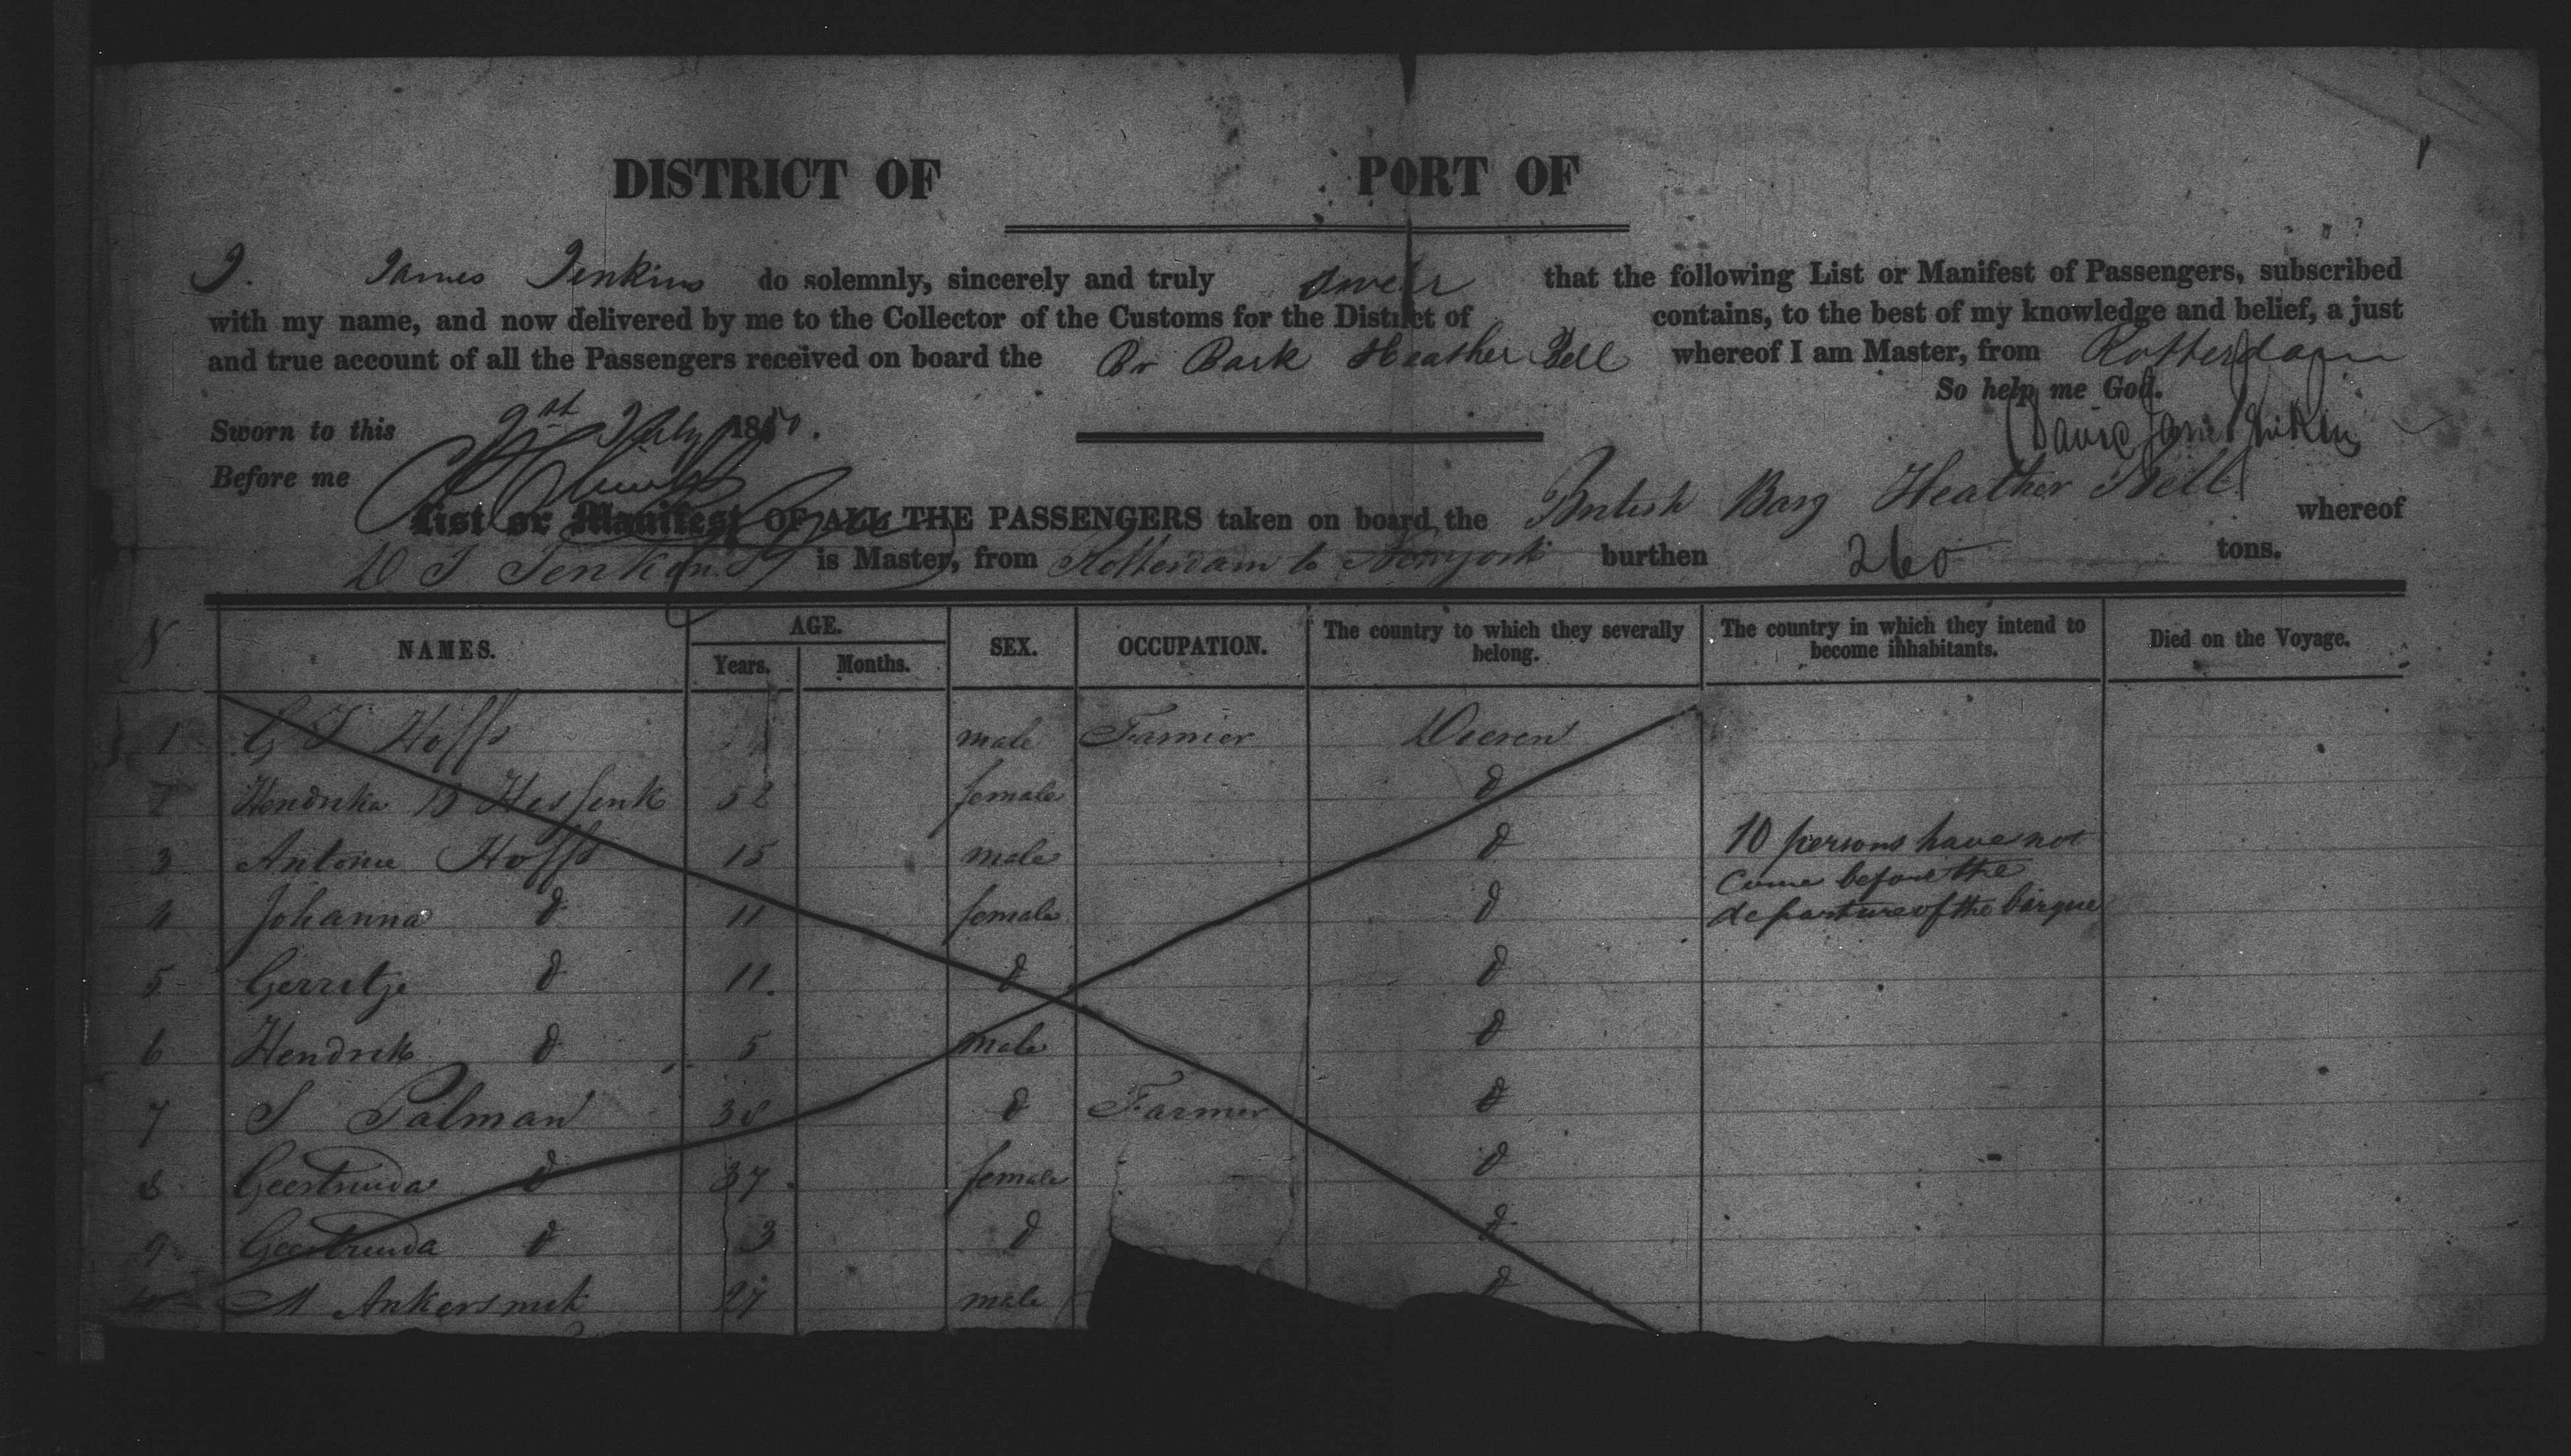 DISTRICT OF PORT OF
I. James Jenkins do solemnly, sincerely and truly swear that the following List or Manifest of Passengers, subscribed
with my name, and now delivered by me to the Collector of the Customs for the District of contains, to the best of my knowledge and belief, a just
and true account of all the Passengers received on board the Br Bark Heather Bell whereof I am Master, from Rotterdam
So help me God.
Sworn to this July 1850.
David James Jenkins
Before me
List or Manifest OF ALL THE PASSENGERS taken on board the British Barq Heather Bell whereof
D J Jenkins is Master, from Rotterdam to Newyork burthen 260 tons.
N NAMES. AGE. Years. Months. SEX. OCCUPATION. The country to which they severally belong. The country in which they intend to become inhabitants. Died on the Voyage.
1 G Hoffs male Farmer
2 Hendrika B 52 female d
3 Antonie Hoffs 15 male d
4 Johanna d 11 female d
5 Gerritje d 11. d d
6 Hendrik d 5 male d
7 Palman 38 d Farmer d
8 Geertruida d 37 female d
9 Geertruida d 3 d d
10 M Ankersmit 27 male d
10 persons have not
come before the
departure of the barque